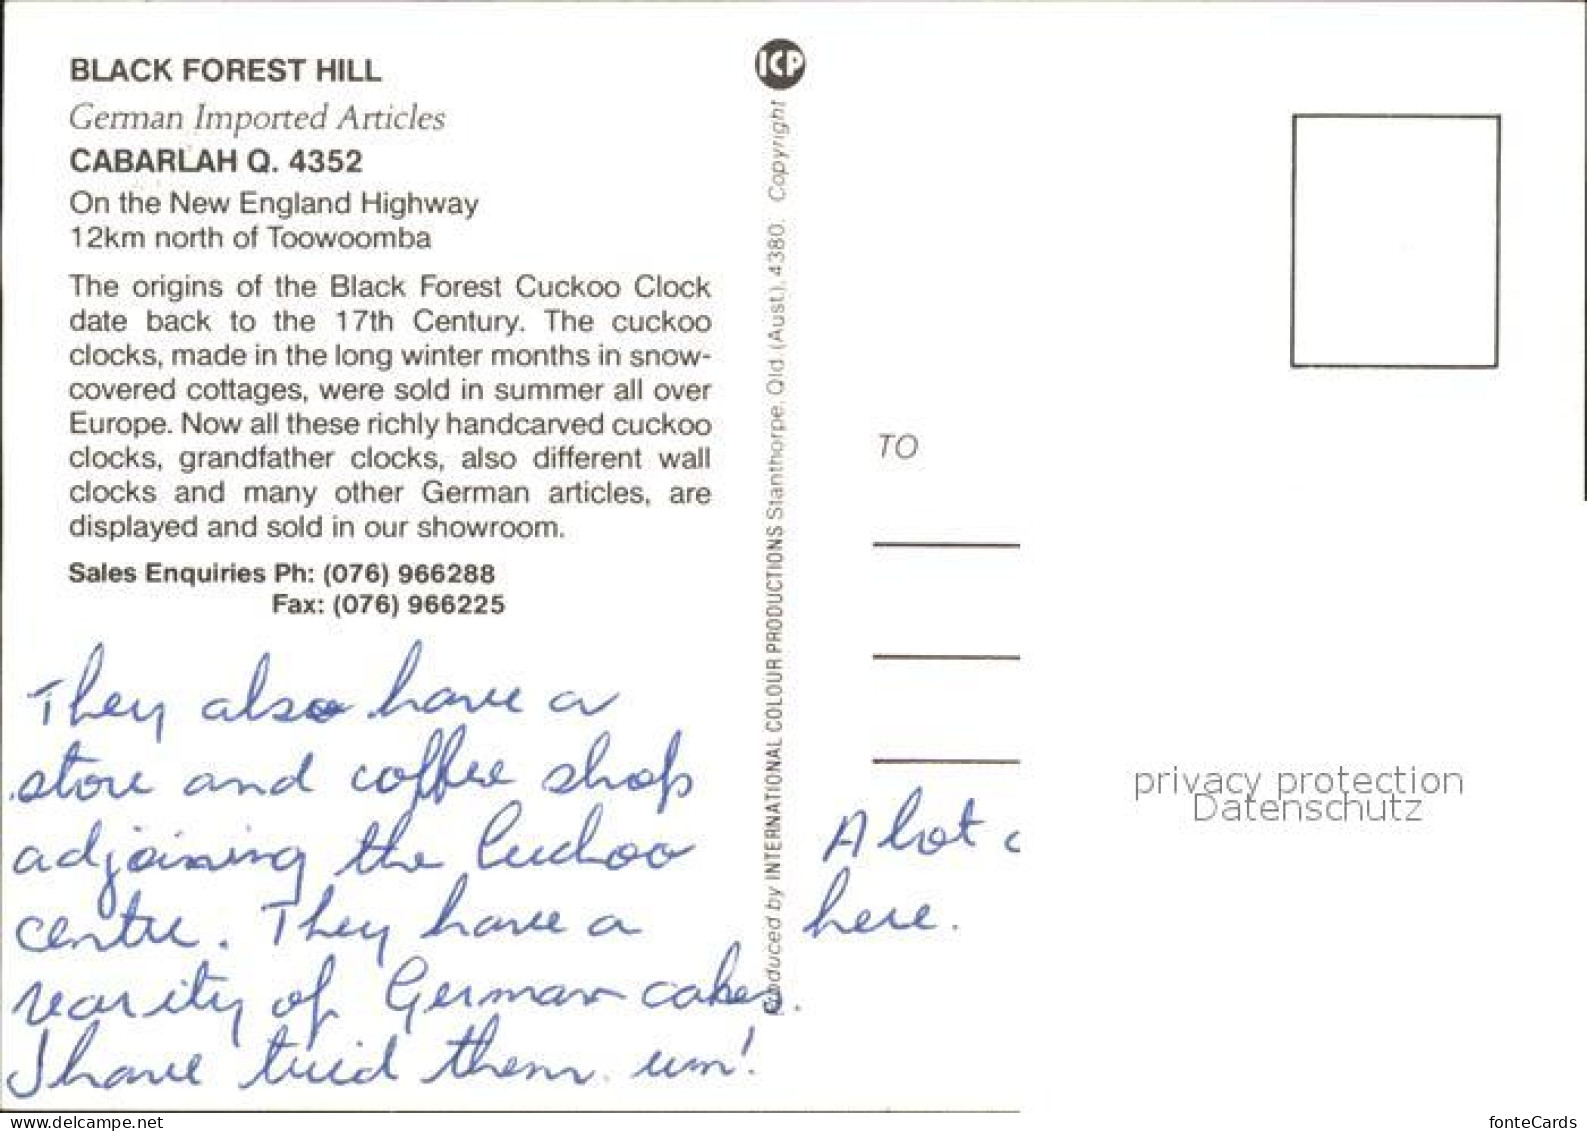 BLACK FOREST HILL
German Imported Articles
CABARLAH Q. 4352
On the New England Highway
12km north of Toowoomba
The origins of the Black Forest Cuckoo Clock
date back to the 17th Century. The cuckoo
clocks, made in the long winter months in snow-
covered cottages, were sold in summer all over
Europe. Now all these richly handcarved cuckoo
clocks, grandfather clocks, also different wall
clocks and many other German articles, are
displayed and sold in our showroom.
Sales Enquiries Ph: (076) 966288
Fax: (076) 966225
They also have a
store and coffee shop
adjoining the Cuckoo
centre. They have a
varity of German cakes.
I have tried them. um!
ICP
Produced by INTERNATIONAL COLOUR PRODUCTIONS Stanthorpe, Qld. (Aust.), 4380. Copyright
TO
A lot
here.
privacy protection
Datenschutz
delcampe.net
fonteCards